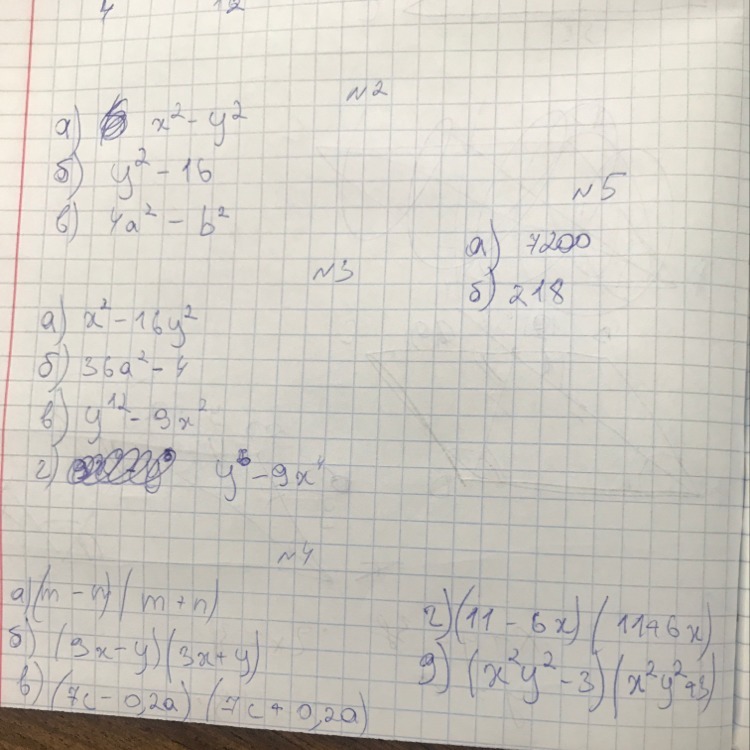 4 12
№2
а) x² - y²
б) y² - 16
в) 4a² - b²
№5
а) 7200
б) 218
№3
а) x² - 16y²
б) 36a² - 4
в) y¹² - 9x²
г) y⁶ - 9x⁴
№4
а) (m - n) (m + n)
б) (3x - y) (3x + y)
в) (7c - 0,2a) (7c + 0,2a)
г) (11 - 6x) (11 + 6x)
д) (x²y² - 3) (x²y² + 3)